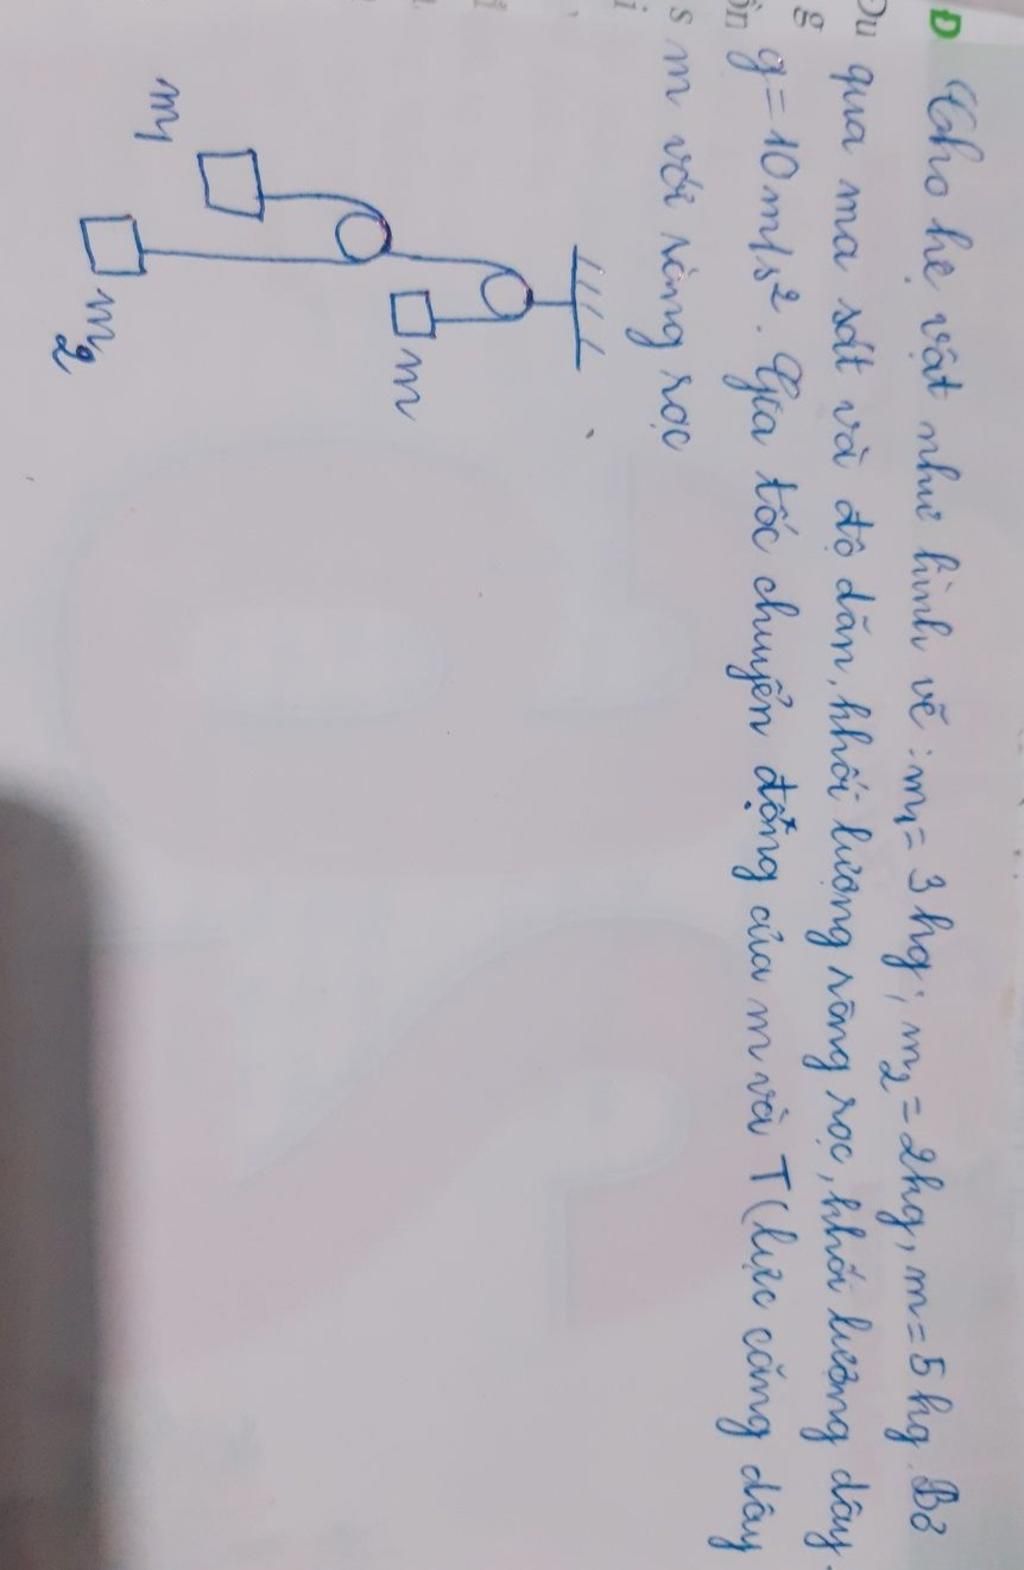 Đ
Cho hệ vật như hình vẽ: m1 = 3 kg; m2 = 2kg, m = 5 kg. Bỏ
qua ma sát và độ dãn, khối lượng ròng rọc, khối lượng dây.
g = 10 m/s². Gia tốc chuyển động của m và T (lực căng dây
m với ròng rọc
m
m1
m2